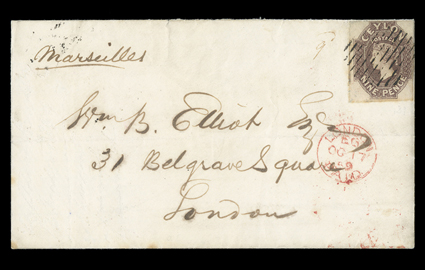 Marseilles
CEYLON
POSTAGE
NINE PENCE
Wm B. Elliot Esq
31 Belgrave Square
London